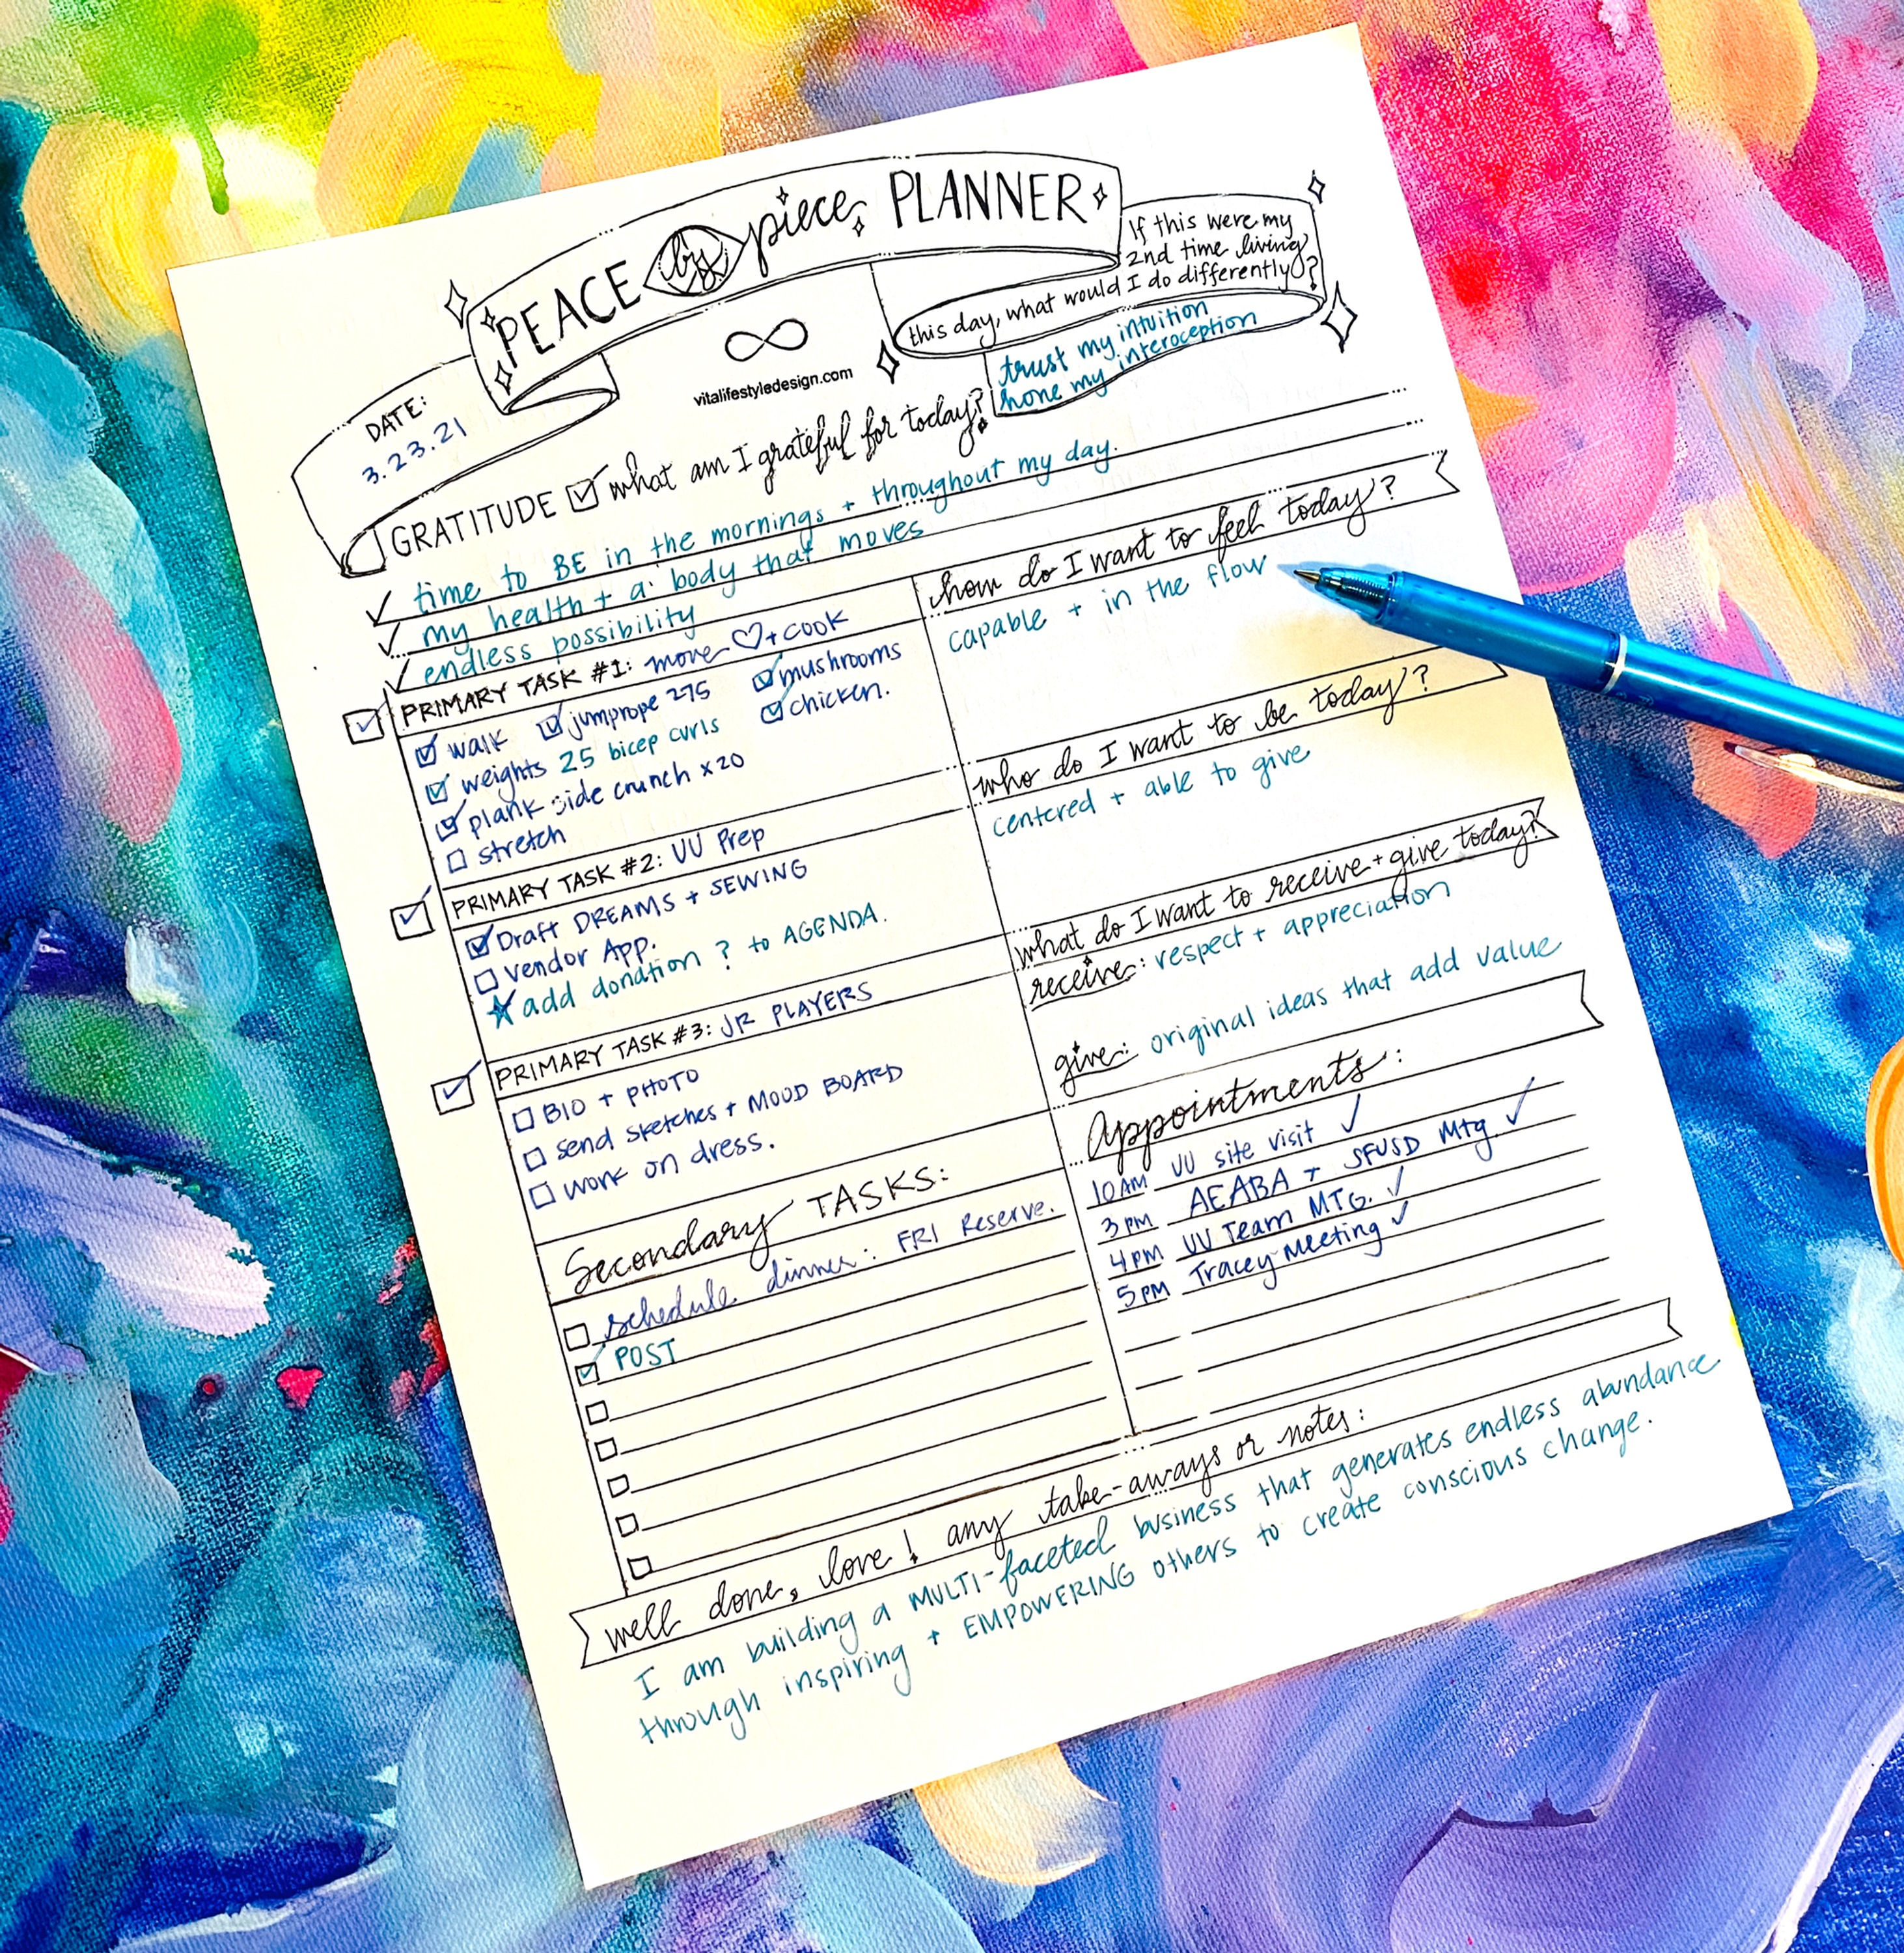 PEACE by piece PLANNER
If this were my
2nd time living
this day, what would I do differently?
trust my intuition
hone my interoception
vitalifestyledesign.com
DATE:
3.23.21
GRATITUDE what am I grateful for today?
time to BE in the mornings + throughout my day.
my health + a body that moves
endless possibility
PRIMARY TASK #1: move ♡ + COOK
walk
jumprope 275
mushrooms
weights 25 bicep curls
chicken.
plank side crunch x20
stretch
PRIMARY TASK #2: VV Prep
Draft DREAMS + SEWING
Vendor App.
add donation ? to AGENDA.
PRIMARY TASK #3: JR PLAYERS
BIO + PHOTO
send sketches + MOOD BOARD
work on dress.
Secondary TASKS:
schedule dinner: FRI Reserve.
POST
how do I want to feel today?
capable + in the flow
who do I want to be today?
centered + able to give
what do I want to receive + give today?
receive: respect + appreciation
give: original ideas that add value
Appointments:
10AM VV site visit
3PM AEABA + SFUSD Mtg.
4PM VV Team MTG.
5PM Tracey Meeting
well done, love! any take-aways or notes:
I am building a MULTI-faceted business that generates endless abundance
through inspiring + EMPOWERING others to create conscious change.